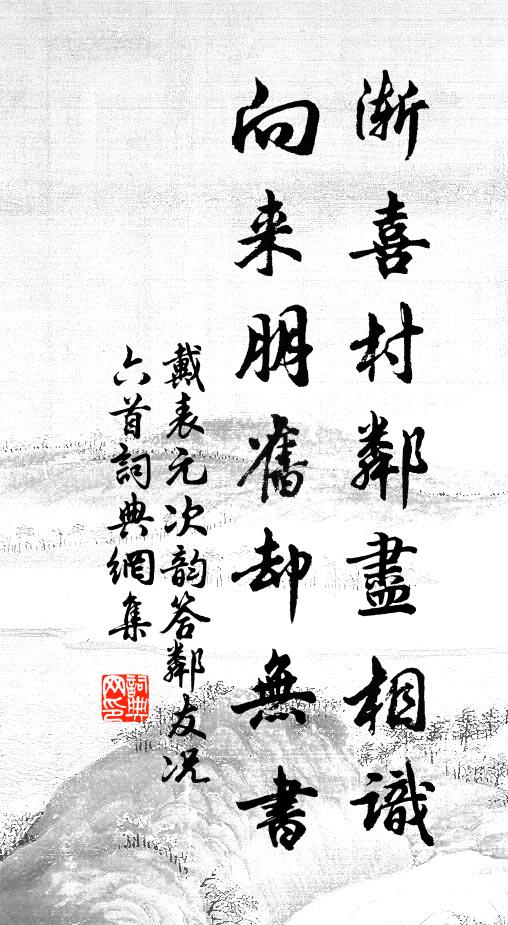 漸喜村鄰盡相識
向来朋舊却無書
戴表元次韵答鄰友况
六首詞典網集
詞典网印